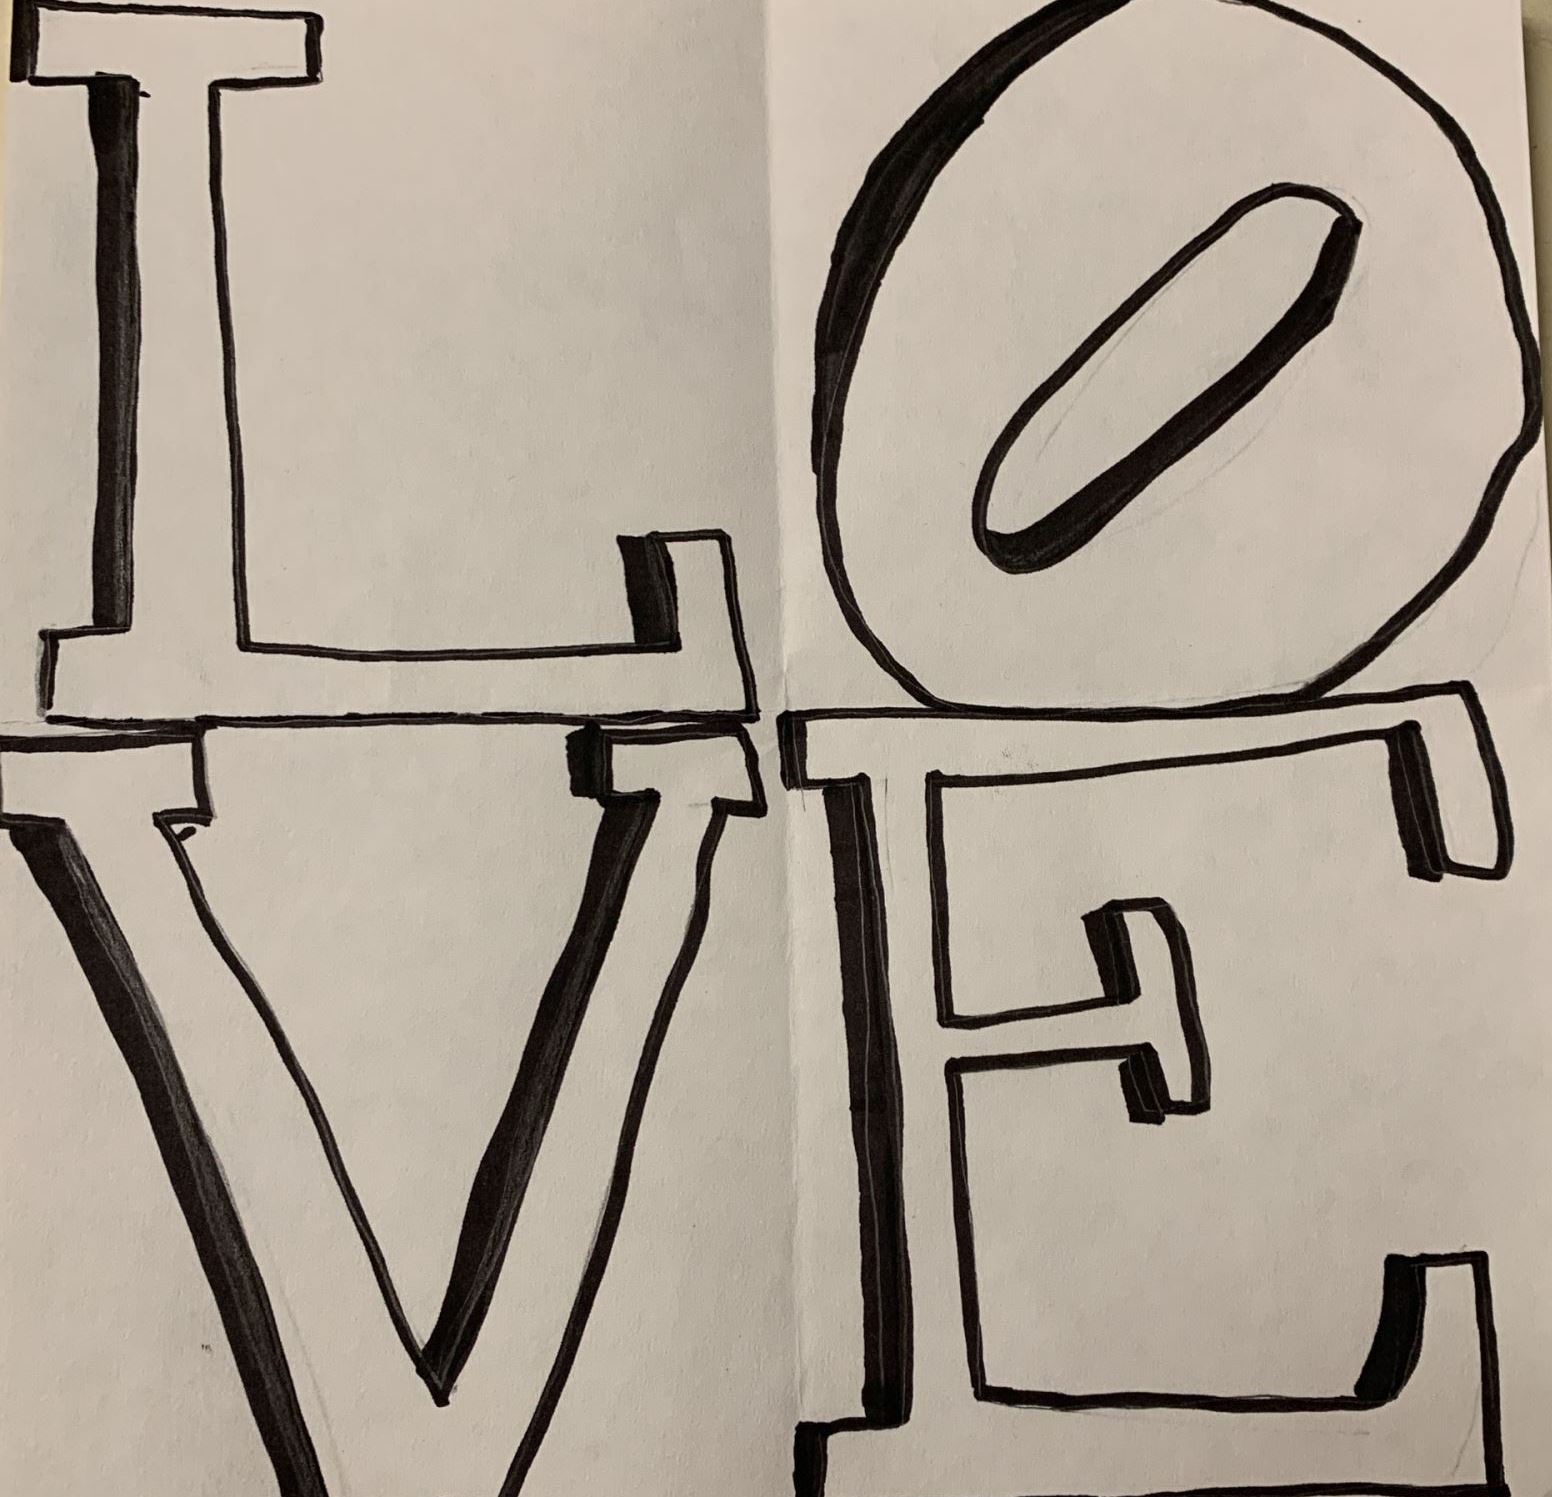 LO
VE